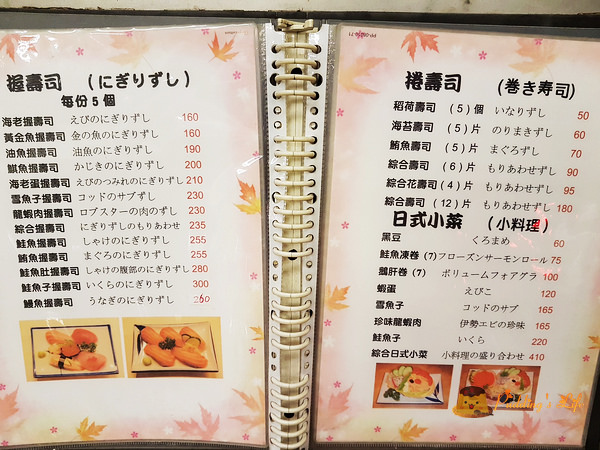 握壽司 (にぎりずし)
每份5個
海老握壽司 えびのにぎりずし 160
黃金魚握壽司 金の魚のにぎりずし 160
油魚握壽司 油魚のにぎりずし 190
旗魚握壽司 かじきのにぎりずし 200
海老蛋握壽司 えびのつみれのにぎりずし 210
雪魚子握壽司 コッドのサブずし 230
龍蝦肉握壽司 ロブスターの肉のずし 230
綜合握壽司 にぎりずしのもりあわせ 235
鮭魚握壽司 しゃけのにぎりずし 255
鮪魚握壽司 まぐろのにぎりずし 255
鮭魚肚握壽司 しゃけの腹部のにぎりずし 280
鮭魚子握壽司 いくらのにぎりずし 300
鰻魚握壽司 うなぎのにぎりずし 260
捲壽司 (巻き寿司)
稻荷壽司 (5)個 いなりずし 50
海苔壽司 (5)片 のりまきずし 60
鮪魚壽司 (5)片 まぐろずし 70
綜合壽司 (6)片 もりあわせずし 90
綜合花壽司(4)片 もりあわせずし 95
綜合壽司 (12)片 もりあわせずし 180
日式小菜 (小料理)
黑豆 くろまめ 60
鮭魚凍卷 (7)フローズンサーモンロール 75
鵝肝卷 (7) ボリュームフォアグラ 100
蝦蛋 えびこ 120
雪魚子 コッドのサブ 165
珍味龍蝦肉 伊勢エビの珍味 165
鮭魚子 いくら 220
綜合日式小菜 小料理の盛り合わせ 410